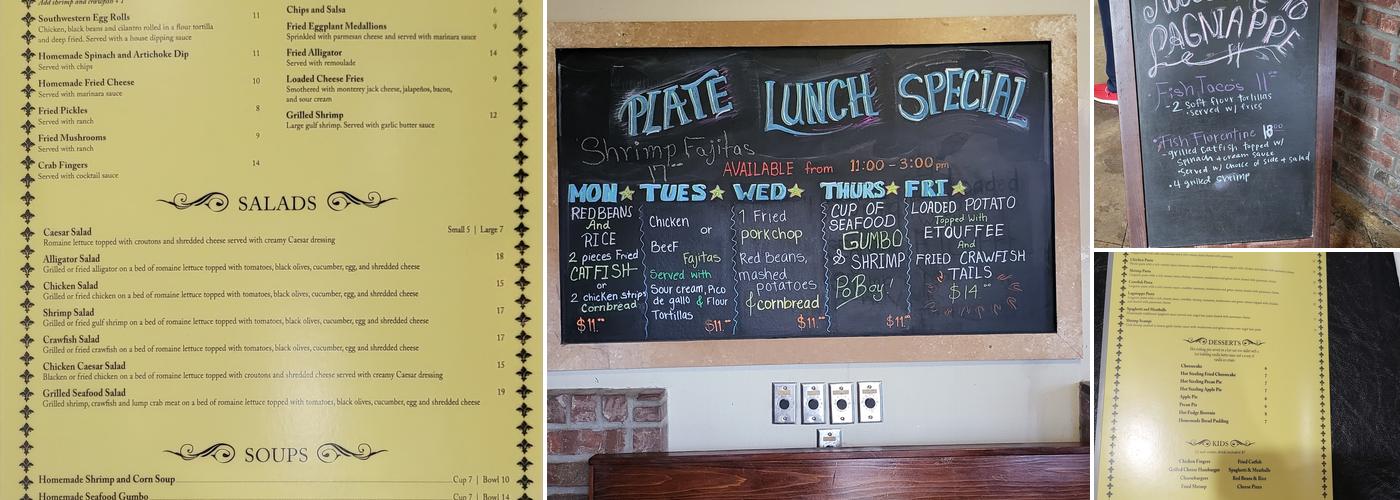 Add shrimp and crawfish + 1
Southwestern Egg Rolls 11
Chicken, black beans and cilantro rolled in a flour tortilla
and deep fried. Served with a house dipping sauce
Homemade Spinach and Artichoke Dip 11
Served with chips
Homemade Fried Cheese 10
Served with marinara sauce
Fried Pickles 8
Served with ranch
Fried Mushrooms 9
Served with ranch
Crab Fingers 14
Served with cocktail sauce
Chips and Salsa 6
Fried Eggplant Medallions 9
Sprinkled with parmesan cheese and served with marinara sauce
Fried Alligator 14
Served with remoulade
Loaded Cheese Fries 9
Smothered with monterey jack cheese, jalapeños, bacon,
and sour cream
Grilled Shrimp 12
Large gulf shrimp. Served with garlic butter sauce
SALADS
Caesar Salad Small 5 | Large 7
Romaine lettuce topped with croutons and shredded cheese served with creamy Caesar dressing
Alligator Salad 18
Grilled or fried alligator on a bed of romaine lettuce topped with tomatoes, black olives, cucumber, egg and shredded cheese
Chicken Salad 15
Grilled or fried chicken on a bed of romaine lettuce topped with tomatoes, black olives, cucumber, egg and shredded cheese
Shrimp Salad 17
Grilled or fried gulf shrimp on a bed of romaine lettuce topped with tomatoes, black olives, cucumber, egg and shredded cheese
Crawfish Salad 17
Grilled or fried crawfish on a bed of romaine lettuce topped with tomatoes, black olives, cucumber, egg and shredded cheese
Chicken Caesar Salad 15
Blacken or fried chicken on a bed of romaine lettuce topped with croutons and shredded cheese served with creamy Caesar dressing
Grilled Seafood Salad 19
Grilled shrimp, crawfish and lump crab meat on a bed of romaine lettuce topped with tomatoes, black olives, cucumber, egg and shredded cheese
SOUPS
Homemade Shrimp and Corn Soup Cup 7 | Bowl 10
Homemade Seafood Gumbo Cup 7 | Bowl 14
PLATE LUNCH SPECIAL
Shrimp Fajitas
17
AVAILABLE from 11:00 - 3:00 pm
MON
RED BEANS
And
RICE
2 pieces Fried
CATFISH
or
2 chicken strips
Cornbread
$11.
TUES
Chicken
or
Beef
Fajitas
Served with
Sour cream, Pico
de gallo & Flour
Tortillas
$11
WED
1 Fried
porkchop
Red Beans,
mashed
potatoes
& cornbread
$11
THURS
CUP OF
SEAFOOD
GUMBO
& SHRIMP
PoBoy!
$11
FRI
LOADED POTATO
Topped With
ETOUFFEE
And
FRIED CRAWFISH
TAILS
$14.00
TO
LAGNIAPPE
Fish Tacos 11
- 2 Soft flour tortillas
- Served w/ fries
Fish Florentine 18.00
- grilled Catfish topped w/
Spinach + cream sauce
- Served w/ choice of side + salad
. 4 grilled shrimp
Chicken Pasta
Shrimp Pasta
Crawfish Pasta
Lagniappe Pasta
Spaghetti and Meatballs
Shrimp Scampi
DESSERTS
Cheesecake 6
Hot Sizzling Fried Cheesecake 7
Hot Sizzling Pecan Pie 7
Hot Sizzling Apple Pie 7
Apple Pie
Pecan Pie
Hot Fudge Brownie
Homemade Bread Pudding 7
KIDS
Chicken Fingers
Grilled Cheese Hamburger
Cheeseburgers
Fried Shrimp
Fried Catfish
Spaghetti & Meatballs
Red Beans & Rice
Cheese Pizza